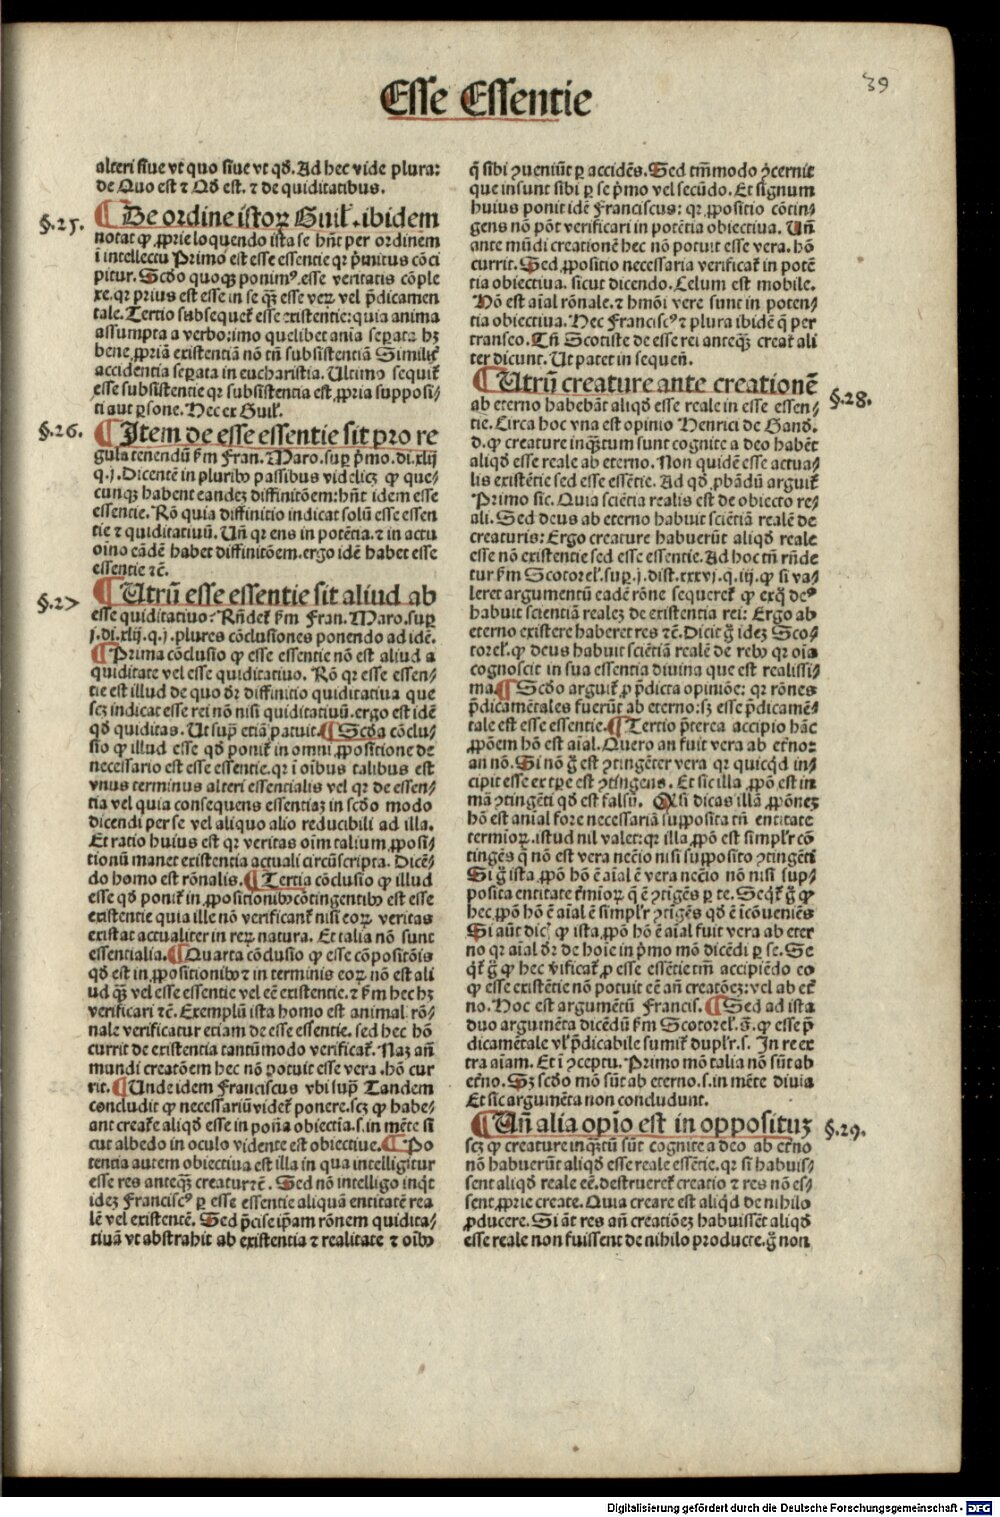 39
Esse Essentie
alteri siue vt quo siue vt qd̛. Ad hec vide plura:
de Quo est ⁊ Qd̛ est. ⁊ de quiditatibus.
§.25.
¶ De ordine istoꝝ Guil̛. ibidem
notat ꝙ ꝓprie loquendo ista se hn̄t per ordinem
ī intellectu Primo est esse essentie qꝛ p̄mitus cōci
pitur. Scd̛o quoqꝫ ponimꝰ esse veritatis cōple
xe. qꝛ prius est esse in se qꝫ̄ esse veꝝ vel p̄dicamen
tale. Tertio subsequet̛ esse existentie: quia anima
assumpta a verbo: imo quelibet aīa seꝑata hꝫ
bene ꝓpriā existentiā nō tn̄ subsistentiā Similit̛
accidentia seꝑata in eucharistia. Ultimo sequit̛
esse subsistentie qꝛ subsistentia est ꝓpria supposi⸗
ti aut ꝑsone. Hec ex Guil̛.
§.26.
¶ Item de esse essentie sit pro re
gula tenendū ẜm Fran. Maro. suꝑ p̄mo. di. xlij
q. j. Dicentē in pluribꝰ passibus videlicꝫ ꝙ que⸗
cunqꝫ habent eandeꝫ diffinitōem: hn̄t idem esse
essentie. Rō quia diffinitio indicat solū esse essen
tie ⁊ quiditatiuū. Un̄ qꝛ ens in potētia. ⁊ in actu
oīno eādē habet diffinitōem. ergo idē habet esse
essentie ⁊c̄.
§.27
¶ Utrū esse essentie sit aliud ab
esse quiditatiuo: Rn̄det̛ ẜm Fran. Maro. suꝑ
j. di. xlij. q. j. plures cōclusiones ponendo ad idē.
¶ Prima cōclusio ꝙ esse essentie nō est aliud a
quiditate vel esse quiditatiuo. Rō qꝛ esse essen⸗
tie est illud de quo dꝛ̄ diffinitio quiditatiua que
scꝫ indicat esse rei nō nisi quiditatiuū. ergo est idē
qd̛ quiditas. Ut sup̄ etiā patuit. ¶ Scd̛a cōclu⸗
sio ꝙ illud esse qd̛ ponit̛ in omni ꝓpositione de
necessario est esse essentie. qꝛ ī oībus talibus est
vnus terminus alteri essentialis vel qꝛ de essen⸗
tia vel quia consequens essentiaꝫ in scd̛o modo
dicendi per se vel aliquo alio reducibili ad illa.
Et ratio huius est qꝛ veritas oīm talium ꝓposi⸗
tionū manet existentia actuali circūscripta. Dicē⸗
do homo est rōnalis. ¶ Tertia cōclusio ꝙ illud
esse qd̛ ponit̛ in ꝓpositionibꝰ cōtingentibꝰ est esse
existentie quia ille nō verificant̛ nisi eoꝝ veritas
existat actualiter in reꝝ natura. Et talia nō sunt
essentialia. ¶ Quarta cōclusio ꝙ esse cōpositōis
qd̛ est in ꝓpositionibꝰ ⁊ in terminis eoꝝ nō est ali
ud qꝫ̄ vel esse essentie vel eē existentie. ⁊ ẜm hec hꝫ
verificari ⁊c̄. Exemplū ista homo est animal rō⸗
nale verificatur etiam de esse essentie. sed hec hō
currit de existentia tantūmodo verificat̛. Naꝫ an̄
mundi creatōem hec nō potuit esse vera. hō cur
rit. ¶ Unde idem Franciscus vbi sup̄ Tandem
concludit ꝙ necessariū videt̛ ponere. scꝫ ꝙ habe⸗
ant creat̛e aliqd̛ esse in potn̄a obiectia. s. in mēte si
cut albedo in oculo vidente est obiectiue. ¶ Po
tentia autem obiectiua est illa in qua intelligitur
esse res anteqꝫ̄ creatur ⁊c̄. Sed nō intelligo inqt̄
ideꝫ Franciscꝰ ꝑ esse essentie aliquā entitatē rea
lē vel existentē. Sed p̄cise ip̄am rōnem quidita⸗
tiuā vt abstrahit ab existentia ⁊ realitate ⁊ oībꝰ
q̄ sibi ꝯueniūt ꝑ accidēs. Sed tm̄modo ꝯcernit
que insunt sibi ꝑ se p̄mo vel secūdo. Et signum
huius ponit idē Franciscus: qꝛ ꝓpositio cōtin⸗
gens nō pōt verificari in potētia obiectiua. Un̄
ante mūdi creationē hec nō potuit esse vera. hō
currit. Sed ꝓpositio necessaria verificat̛ in potē
tia obiectiua. sicut dicendo. Celum est mobile.
Hō est aīal rōnale. ⁊ hmōi vere sunt in poten⸗
tia obiectiua. Hec Franciscꝰ ⁊ plura ibidē q̄ per
transeo. Tn̄ Scotiste de esse rei anteqꝫ̄ creat̛ ali
ter dicunt. Ut patet in sequen̄.
¶ Utrū creature ante creationē
§.28.
ab eterno habebāt aliqd̛ esse reale in esse essen⸗
tie. Circa hoc vna est opinio Henrici de Gand̛.
d. ꝙ creature inqꝫ̄tum sunt cognite a deo habēt
aliqd̛ esse reale ab eterno. Non quidē esse actua⸗
lis existētie sed esse essentie. Ad qd̛ ꝓbādū arguit̛
Primo sic. Quia sciētia realis est de obiecto re⸗
ali. Sed deus ab eterno habuit sciētiā realē de
creaturis: Ergo creature habuerūt aliqd̛ reale
esse nō existentie sed esse essentie. Ad hoc tn̄ rn̄de
tur ẜm Scotorel̛. suꝑ. j. dist. xxxvj. q. iij. ꝙ si va⸗
leret argumentū eadē rōne sequeret̛ ꝙ exq̄ deꝰ
habuit scientiā realeꝫ de existentia rei: Ergo ab
eterno existere haberet res ⁊c̄. Dicit g̊ ideꝫ Sco⸗
torel̛. ꝙ deus habuit sciētiā realē de rebꝰ qꝛ oīa
cognoscit in sua essentia diuina que est realissi⸗
ma. ¶ Scd̛o arguit̛ ꝓ p̄dicta opiniōe: qꝛ rōnes
p̄dicamētales fuerūt ab eterno: sꝫ esse p̄dicamē⸗
tale est esse essentie. ¶ Tertio p̄terea accipio hāc
ꝓpōem hō est aīal. Quero an fuit vera ab et̛no:
an nō. Si nō g̊ est ꝯtingēter vera qꝛ quicqd̛ in⸗
cipit esse ex tꝑe est ꝯtingens. Et sic illa ꝓpō est in
mā ꝯtingēti qd̛ est falsū. Qꝛ si dicas illā ꝓpōneꝫ
hō est anīal fore necessariā supposita tn̄ entitate
termīoꝝ. istud nil valet: qꝛ illa ꝓpō est simpl̛r cō
tingēs q̄ nō est vera nec̄io nisi supposito ꝯtingēti
Si g̊ ista ꝓpō hō ē aīal ē vera nec̄io nō nisi sup⸗
posita entitate t̛mīoꝝ q̄ ē ꝯtīgēs ꝑ te. Seqt̛ g̊ ꝙ
hec ꝓpō hō ē aīal ē simpl̛r ꝯtīgēs qd̛ ē īcōueniēs
Si aūt dicꝭ ꝙ ista ꝓpō hō ē aīal fuit vera ab eter
no qꝛ aīal dꝛ̄ de hoīe in p̄mo mō dicēdi ꝑ se. Se
qt̛ g̊ ꝙ hec v̓ificat̛ ꝓ esse essētie tm̄ accipiēdo eo
ꝙ esse existentie nō potuit eē an̄ creatōeꝫ: vel ab et̛
no. Hoc est argumētū Francis. ¶ Sed ad ista
duo argumēta dicēdū ẜm Scotorel̛. s̄. ꝙ esse p̄
dicamētale vl̛ p̄dicabile sumit̛ dupl̛r. s. In re ex
tra aīam. Et ī ꝯceptu. Primo mō talia nō sūt ab
et̛no. Sꝫ scd̛o mō sūt ab eterno. s. in mēte diuīa
Et sic argumēta non concludunt.
¶ Un̄ alia opīo est in oppositūꝫ
§.29.
scꝫ ꝙ creature inqꝫ̄tū sūt cognite a deo ab et̛no
nō habuerūt aliqd̛ esse reale essētie. qꝛ si habuis⸗
sent aliqd̛ reale eē. destrueret̛ creatio ⁊ res nō es⸗
sent ꝓprie create. Quia creare est aliqd̛ de nihilo
ꝓducere. Si āt res an̄ creatiōeꝫ habuissēt aliqd̛
esse reale non fuissent de nihilo producte. g̊ non
Digitalisierung gefördert durch die Deutsche Forschungsgemeinschaft - DFG